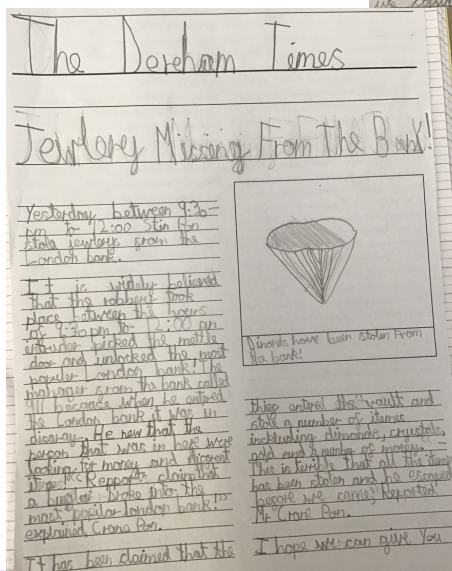 The Dereham Times
Jewlery Missing From The Bank!
Yesterday between 9:30
pm to 12:00 Stin Pon
stole jewlerys from the
London bank.
It is widely believed
that the robbery took
place between the hours
of 9:30pm to 12:00 an
entruder picked the mettle
door and unlocked the most
populer London bank! The
manager from the bank called
911 because when he entered
the London bank it was in
disaray. He new that the
person that was in here were
looking for money and diferent
items. Repports claim that
a burglar broke into the
most popular london bank!"
explained, Crane Pon.
It has been claimed that the
Dimonds have been stolen From
the bank!
thief entered the vault and
stole a number of items
including dimonds, crystals,
gold and a number of
This is terrible that all the items
has been stolen and he escaped
before we came," Reported
Mr Crane Pon.
I hope we can give you